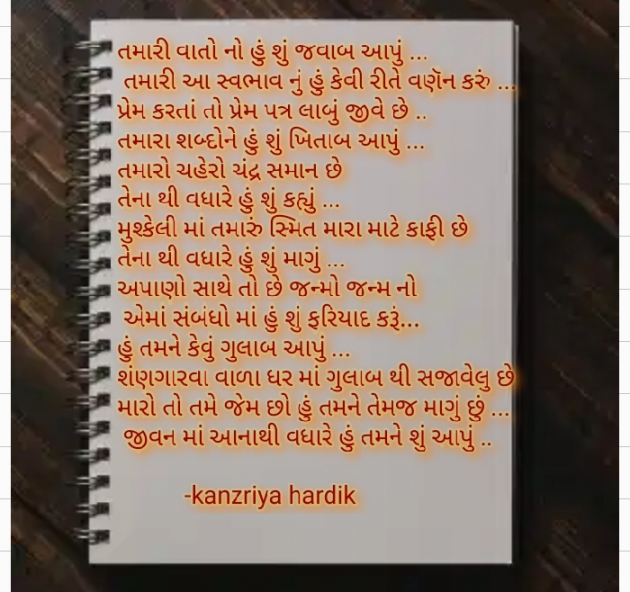 તમારી વાતો નો હું શું જવાબ આપું ...
તમારી આ સ્વભાવ નું હું કેવી રીતે વણૅન કરું ...
પ્રેમ કરતાં તો પ્રેમ પત્ર લાબું જીવે છે ..
તમારા શબ્દોને હું શું ખિતાબ આપું ...
તમારો ચહેરો ચંદ્ર સમાન છે
તેના થી વધારે હું શું કહ્યું ...
મુશ્કેલી માં તમારું સ્મિત મારા માટે કાફી છે
તેના થી વધારે હું શું માગું ...
અપાણો સાથે તો છે જન્મો જન્મ નો
એમાં સંબંધો માં હું શું ફરિયાદ કરૂં...
હું તમને કેવું ગુલાબ આપું ...
શંણગારવા વાળા ઘર માં ગુલાબ થી સજાવેલુ છે
મારો તો તમે જેમ છો હું તમને તેમજ માગું છું ...
જીવન માં આનાથી વધારે હું તમને શું આપું ..
-kanzriya hardik